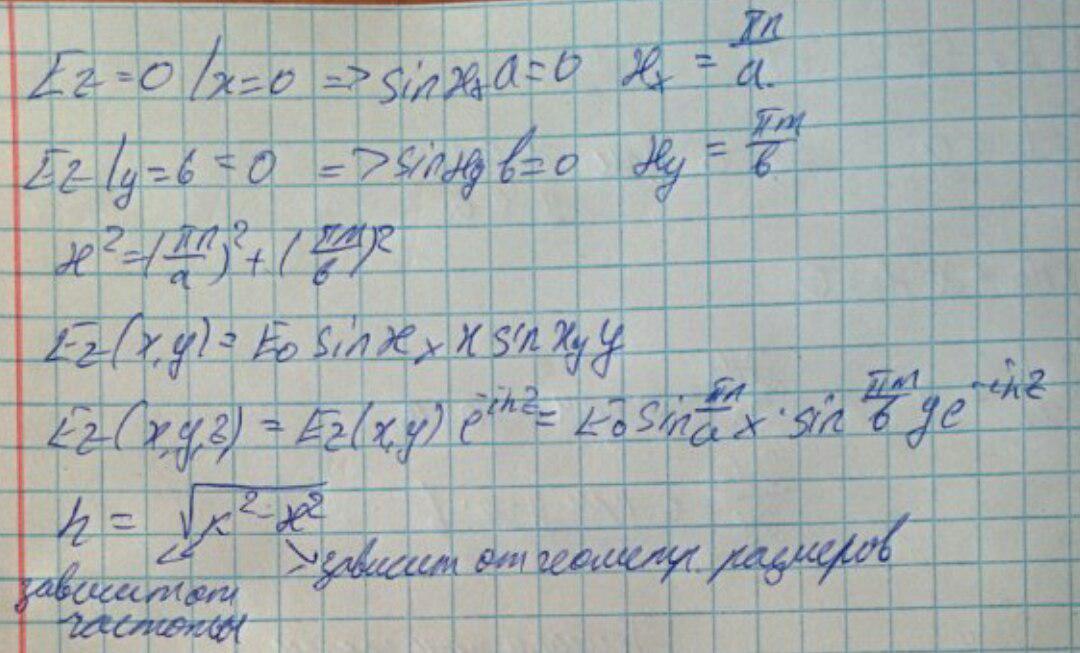 Ez=0 |x=0 => sin ϰₓa=0 ϰₓ = πn/a
Ez|y=b = 0 => sin ϰy b=0 ϰy = πm/b
ϰ² = (πn/a)² + (πm/b)²
Ez(x,y) = E₀ sin ϰₓ x sin ϰy y
Ez(x,y,z) = Ez(x,y) e^-ihz = E₀ sin πn/a x · sin πm/b y e^-ihz
h = √(k²-ϰ²)
зависит от геометр. размеров
зависит от
частоты